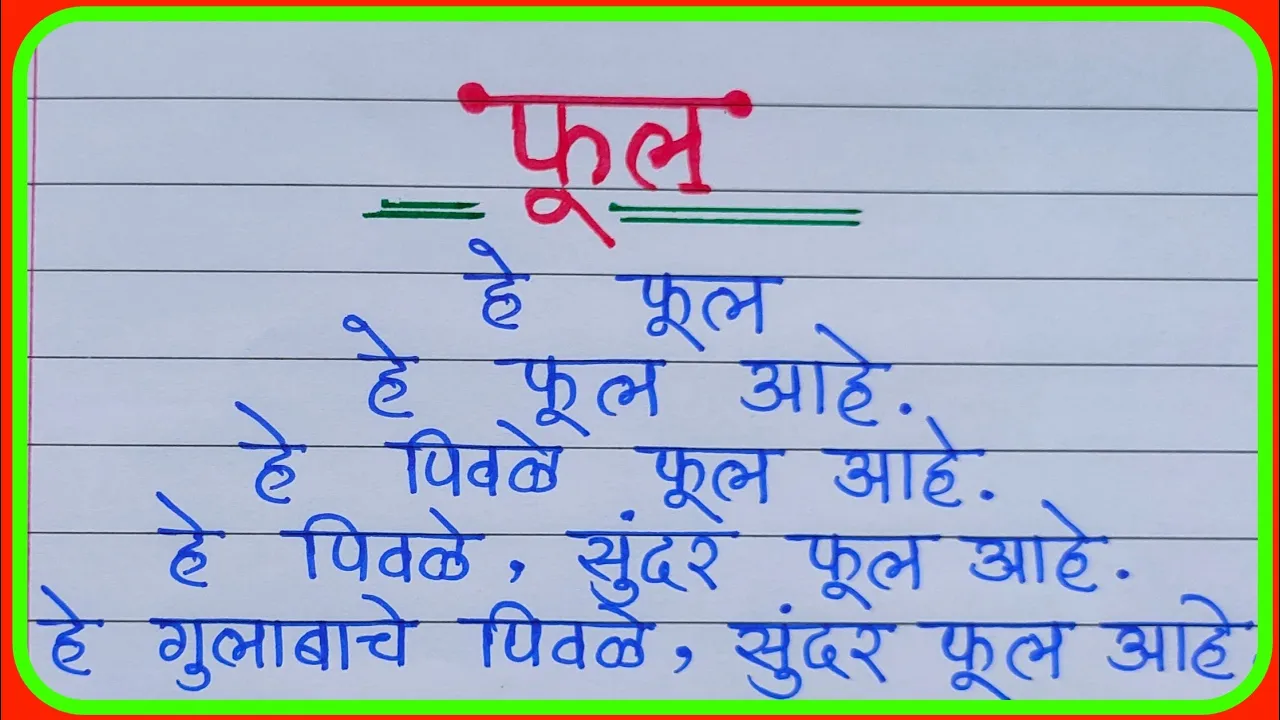 फूल
हे फूल
हे फूल आहे.
हे पिवळे फूल आहे.
हे पिवळे, सुंदर फूल आहे.
हे गुलाबाचे पिवळे, सुंदर फूल आहे.